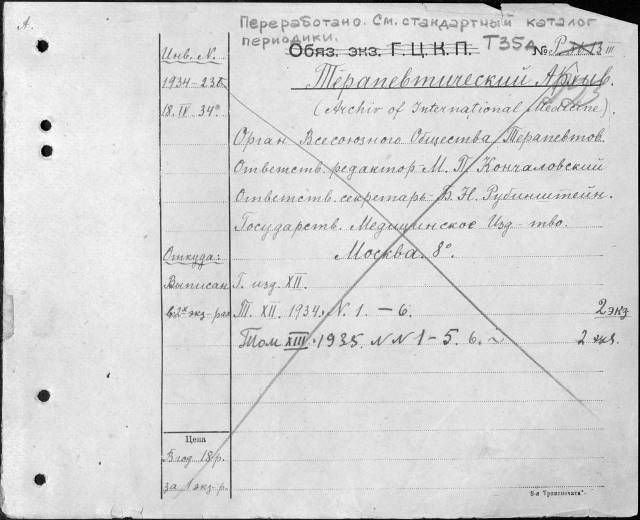 А.
Переработано. См. стандартный каталог
периодики.
Обяз. экз. Г.Ц.К.П. Т35а № Р
Инв. N.
Терапевтический Архив.
1934-23
(Archiv of International Medicine).
18.IV 34°
Орган Всесоюзного Общества Терапевтов.
Ответств. редактор М. П. Кончаловский
Ответств. секретарь Б. Н. Рубинштейн.
Государств. Медицинское Изд-тво.
Москва. 8°.
Откуда:
Выписан Г. изд. XII.
в 2х экз-рах Т. XII. 1934. N. 1. – 6. 2 экз
Том XIII. 1935. N N 1 – 5. 6. 2 экз.
Цена
В год 18 р.
за 1 экз-р.
8-я "Транспечать".